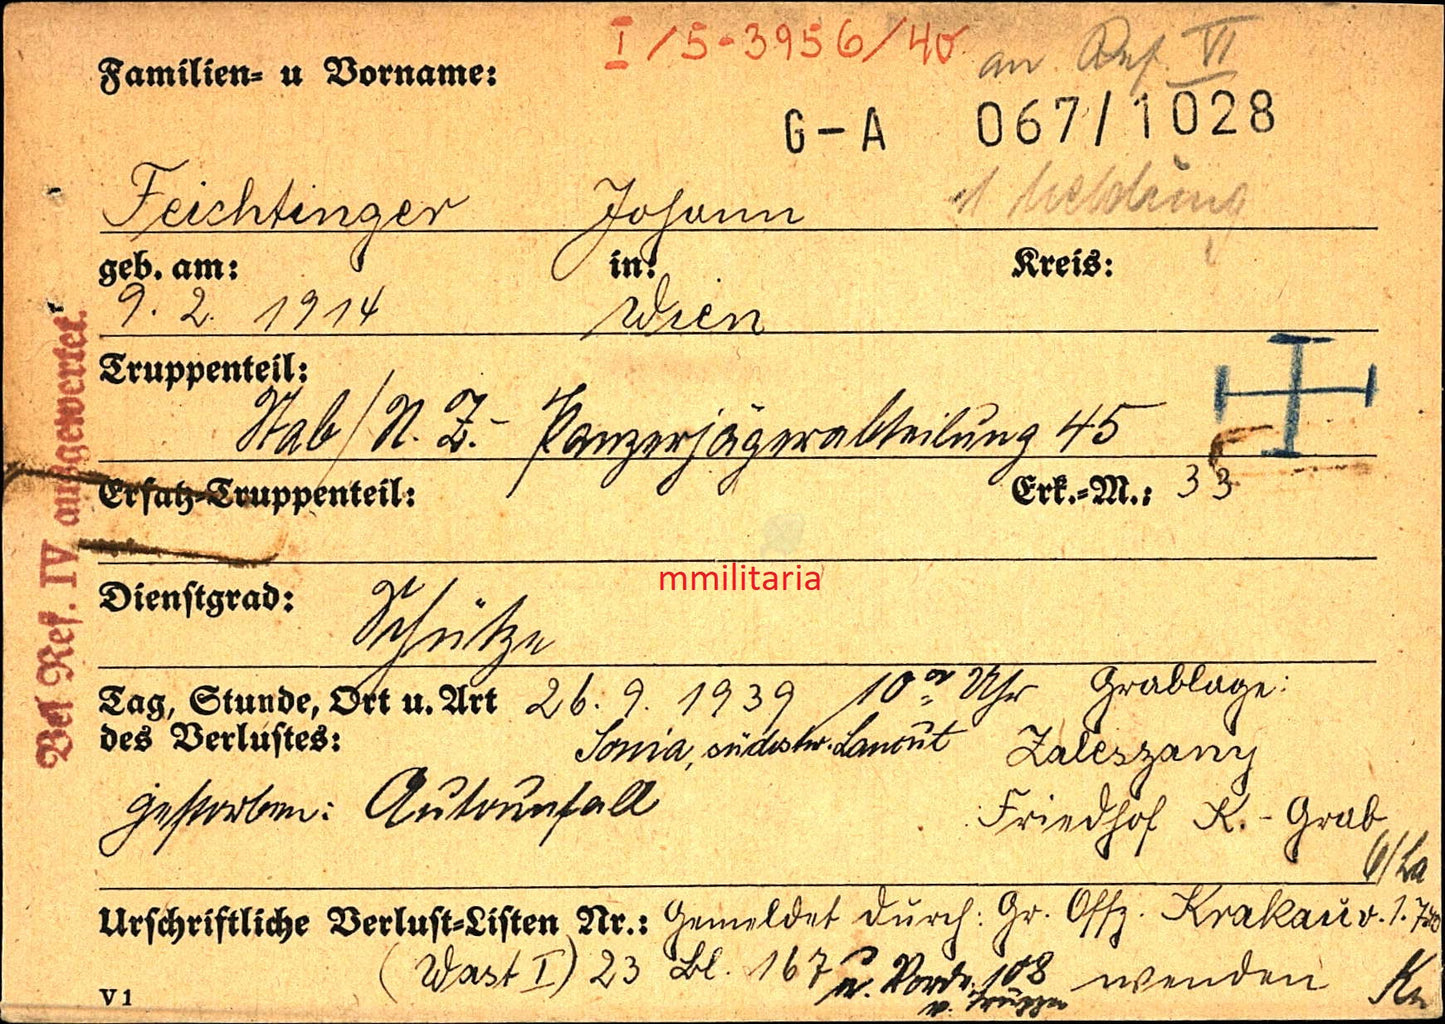 I/5-3956/40 an Ref. VI
Familien- u Vorname:
G-A 067/1028
Feichtinger Johann Meldung
geb. am: in: Kreis:
9. 2. 1914 Wien
Truppenteil:
Stab/N.Z.- Panzerjägerabteilung 45
Ersatz-Truppenteil: Erk.-M.: 33
Dienstgrad: Schütze
mmilitaria
Tag, Stunde, Ort u. Art 26. 9. 1939 10 Uhr Grablage:
des Verlustes: Sonia, südostw. Lancut Zaleszany
gestorben: Autounfall Friedhof K.-Grab
6/La
Urschriftliche Verlust-Listen Nr.: Gemeldet durch: Gr. Offz. Krakau v. 1.
(Wast I) 23 Bl. 167 u. Vordr. 108 wenden Kn
v. Truppe
V1
Bei Ref. IV ausgewertet.